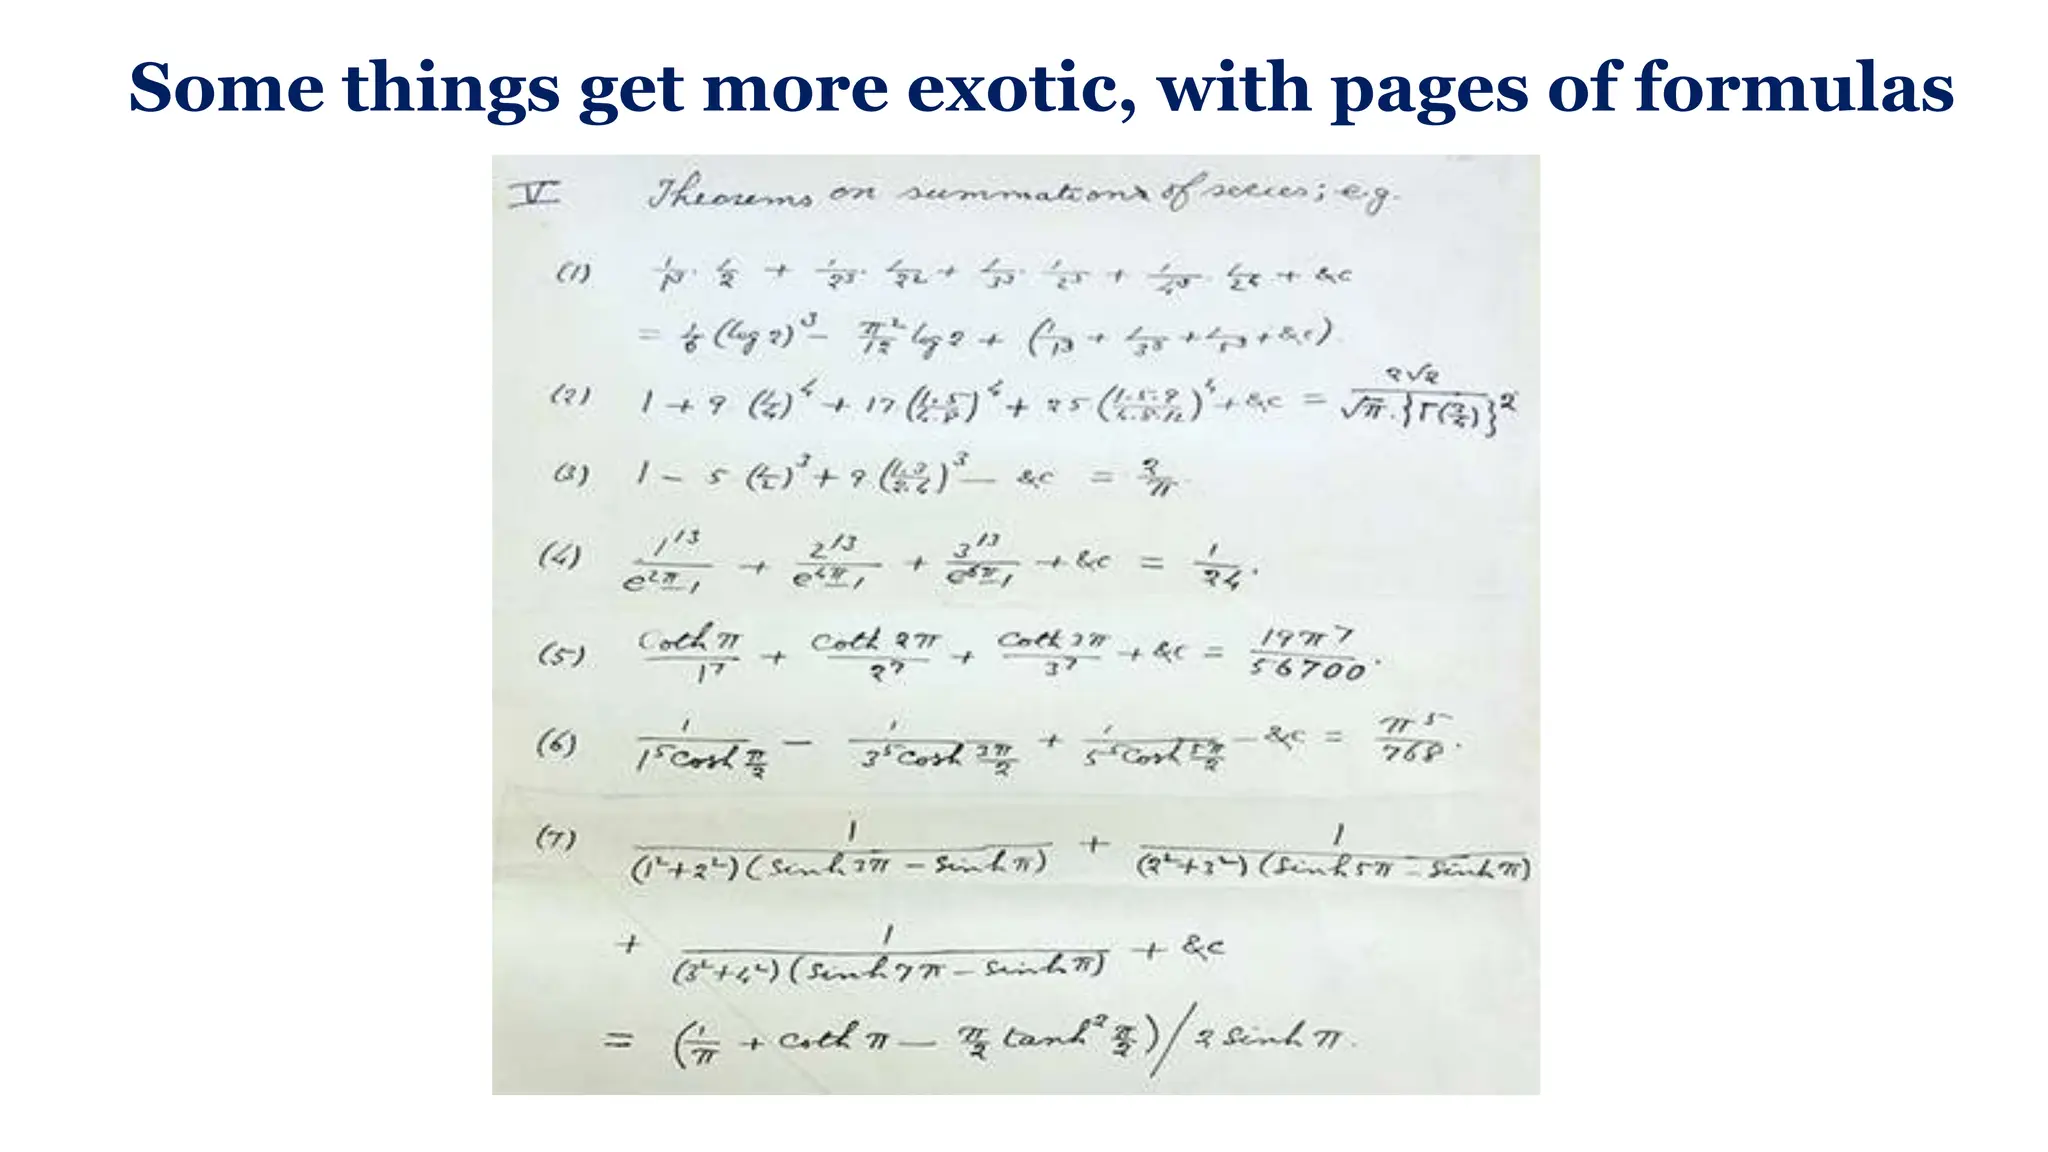 Some things get more exotic, with pages of formulas
V Theorems on summations of series; e.g.
(1) 1/1³ · 1/2 + 1/2³ · 1/2² + 1/3³ · 1/2³ + 1/4³ · 1/2⁴ + &c
= 1/6 (log 2)³ – π²/12 log 2 + (1/1³ + 1/3³ + 1/5³ + &c).
(2) 1 + 9 (1/4)⁴ + 17 (1.5/4.8)⁴ + 25 (1.5.9/4.8.12)⁴ + &c = 2√2 / √π . {Γ(3/4)}²
(3) 1 – 5 (1/2)³ + 9 (1.3/2.4)³ – &c = 2/π.
(4) 1¹³/(e^2π – 1) + 2¹³/(e^4π – 1) + 3¹³/(e^6π – 1) + &c = 1/24.
(5) Coth π/1⁷ + Coth 2π/2⁷ + Coth 3π/3⁷ + &c = 19π⁷/56700.
(6) 1/(1⁵ Cosh π/2) – 1/(3⁵ Cosh 3π/2) + 1/(5⁵ Cosh 5π/2) – &c = π⁵/768.
(7) 1/(1²+2²)(Sinh 3π – Sinh π) + 1/(2²+3²)(Sinh 5π – Sinh π)
+ 1/(3²+4²)(Sinh 7π – Sinh π) + &c
= (1/π + Coth π – π/2 tanh² π/2) / 2 Sinh π.